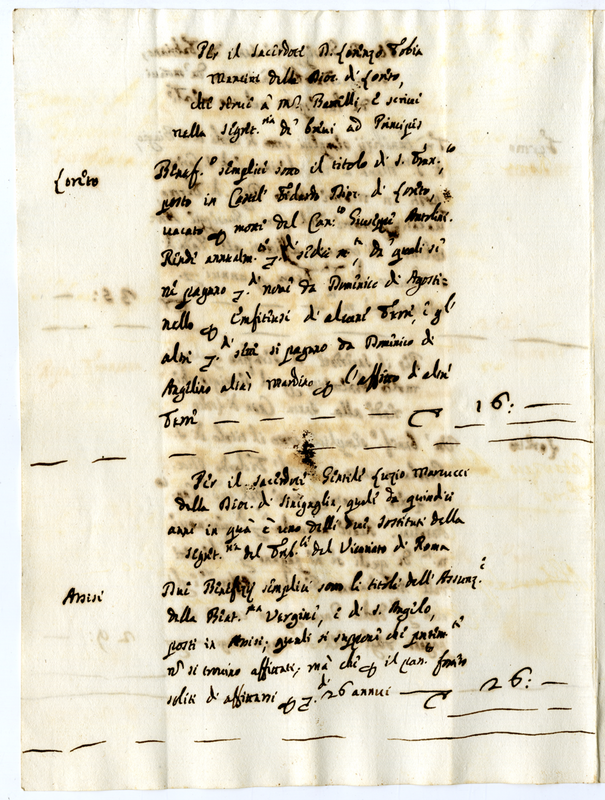 Per il sacerdote D. Lorenzo Tobia
Mancini della Dioc. di Loreto,
che serve à Mr. Bonilli, e scrive
nella Segret.ria de' brevi ad Principes
Loreto
Benef.o semplice sotto il titolo di S. Fran.co
posto in Castel Fidardo Dioc. di Loreto,
vacato p morte del Can.co Giuseppe Antolini.
Rende annualm.te sedici m.ta, de' quali se
ne pagano nove da Domenico di Agosti=
nello p Emfiteusi di alcune Terre, e gl'
altri sette si pagano da Domenico di
Angelino alias Mardino p l'affitto d'altre
Terre 16:
Per il sacerdote Gentile Luzio Marcucci
della Dioc. di Sinigaglia, quale da quindici
anni in quà è uno delli due sostituti della
Segret.ria del Trib.le del Vicariato di Roma
Assisi
Due Beneficij semplici sotto li titoli dell'Assunz.e
della Beat.ma Vergine, e di S. Angelo,
posti in Assisi, quali si suppone che
si trovino affittati, mà che p il pas.to fossero
soliti di affittarsi p 26 annui 26: